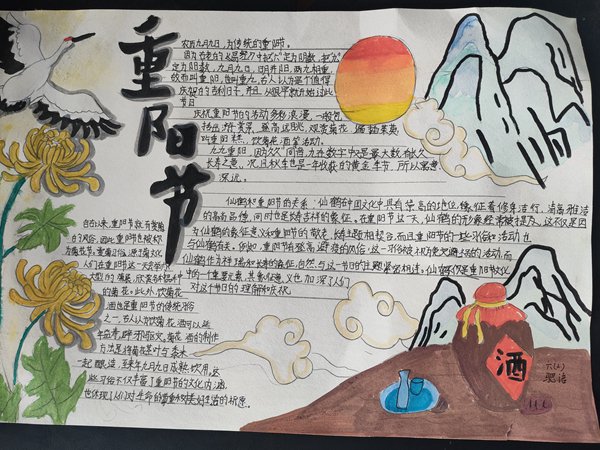 重阳节
农历九月九日，为传统的重阳节。
因为古老的《易经》中把“六”定为阴数，把“九”
定为阳数，九月九日，日月并阳，两九相重，
故而叫重阳，也叫重九，古人认为是个值得
庆贺的吉利日子，并且从很早就开始过此
节日
庆祝重阳节的活动多彩浪漫，一般包
括出游赏景、登高远眺、观赏菊花、遍插茱萸、
吃重阳糕、饮菊花酒等活动。
九九重阳，因为与“久久”同音，九在数字中又是最大数，有长久
长寿之意，况且秋季也是一年收获的黄金季节，所以寓意
深远。
仙鹤和重阳节的关系：仙鹤在中国文化中具有崇高的地位，象征着修身洁行、清高雅洁
的高尚品德，同时也是吉祥的象征。在重阳节这一天，仙鹤的形象经常被提及。这不仅是因
为仙鹤的象征意义和重阳节的敬老、长寿主题相契合，而且重阳节的一些习俗和活动也
与仙鹤有关。例如，重阳节有登高避疫的风俗，这一习俗
仙鹤作为祥瑞和长寿的象征，自然与这一节日的主题紧密相连。
中的一个重要元素，其象征意义也加深了人们
对这个节日的理解和庆祝
自古以来，重阳节就有赏菊
的习俗，因此重阳节也被称
为菊花节。重阳习俗，源于菊文化
人们在重阳节这一天会举办
大型的菊展，欣赏各种各样
的菊花。此外，饮菊花
酒也是重阳节的传统习俗
之一。古人认为饮菊花酒可以延
年益寿，辟邪祛灾。菊花酒的制作
方法是将菊花茎叶与黍米
一起酿造，至来年九月九日始熟饮用。这
些习俗不仅丰富了重阳节的文化内涵，
也体现了人们对生命的尊重和对美好生活的祈愿。
酒